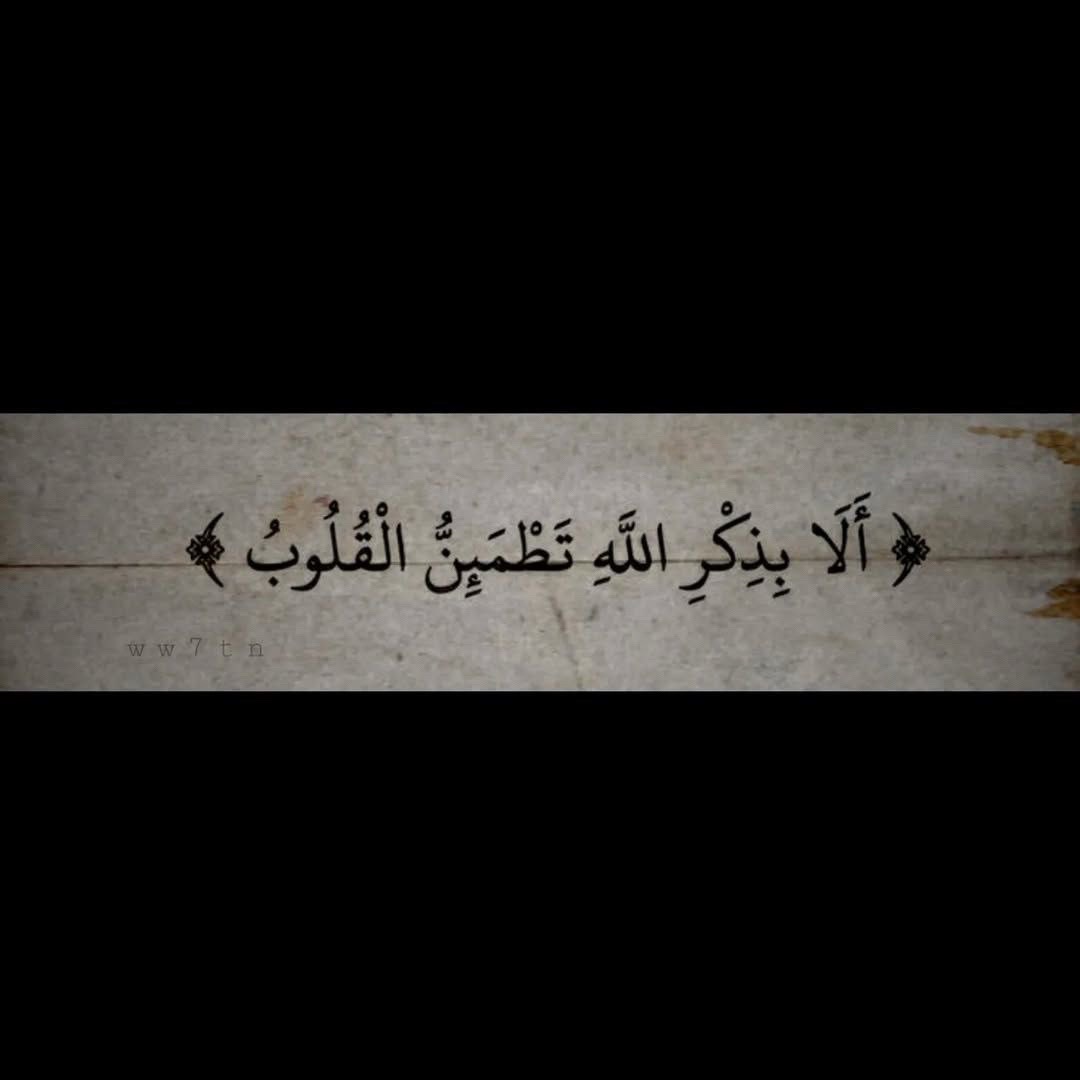 ﴿ أَلَا بِذِكْرِ اللَّهِ تَطْمَئِنُّ الْقُلُوبُ ﴾
ww7tn